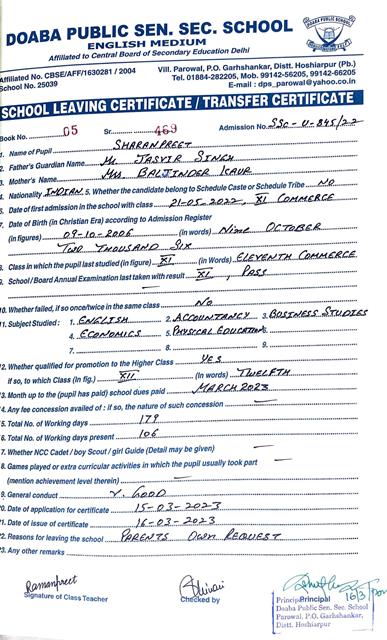 DOABA PUBLIC SEN. SEC. SCHOOL
ENGLISH MEDIUM
Affiliated to Central Board of Secondary Education Delhi
Affiliated No. CBSE/AFF/1630281 / 2004
School No. 25039
Vill. Parowal, P.O. Garhshankar, Distt. Hoshiarpur (Pb.)
Tel. 01884-282205, Mob. 99142-56205, 99142-66205
E-mail : dps_parowal@yahoo.co.in
SCHOOL LEAVING CERTIFICATE / TRANSFER CERTIFICATE
Book No. 05 Sr. 469 Admission No. SSC-U-845/22
1. Name of Pupil SHARANPREET
2. Father's Guardian Name Mr. JASVIR SINGH
3. Mother's Name Mrs. BALJINDER KAUR
4. Nationality INDIAN 5. Whether the candidate belong to Schedule Caste or Schedule Tribe NO
6. Date of first admission in the school with class 21-05-2022, XI COMMERCE
7. Date of Birth (in Christian Era) according to Admission Register
(in figures) 09-10-2006 (in words) Nine OCTOBER
TWO THOUSAND SIX
8. Class in which the pupil last studied (in figure) XI (in words) ELEVENTH COMMERCE
9. School / Board Annual Examination last taken with result XI, PASS
10. Whether failed, if so once/twice in the same class NO
11. Subject Studied : 1. ENGLISH 2. ACCOUNTANCY 3. BUSINESS STUDIES
4. ECONOMICS 5. PHYSICAL EDUCATION 6.
7. 8. 9.
12. Whether qualified for promotion to the Higher Class YES
if so, to which Class (in fig.) XII (In words) TWELFTH
13. Month up to the (pupil has paid) school dues paid MARCH 2023
14. Any fee concession availed of : if so, the nature of such concession
15. Total No. of Working days 179
16. Total No. of Working days present 106
17. Whether NCC Cadet / boy Scout / girl Guide (Detail may be given)
18. Games played or extra curricular activities in which the pupil usually took part
(mention achievement level therein)
19. General conduct V. GOOD
20. Date of application for certificate 15-03-2023
21. Date of issue of certificate 16-03-2023
22. Reasons for leaving the school PARENTS OWN REQUEST
23. Any other remarks
Ramanpreet
Signature of Class Teacher
Shivani
Checked by
16/3
Principal
Principal
Doaba Public Sen. Sec. School
Parowal, P.O. Garhshankar,
Distt. Hoshiarpur